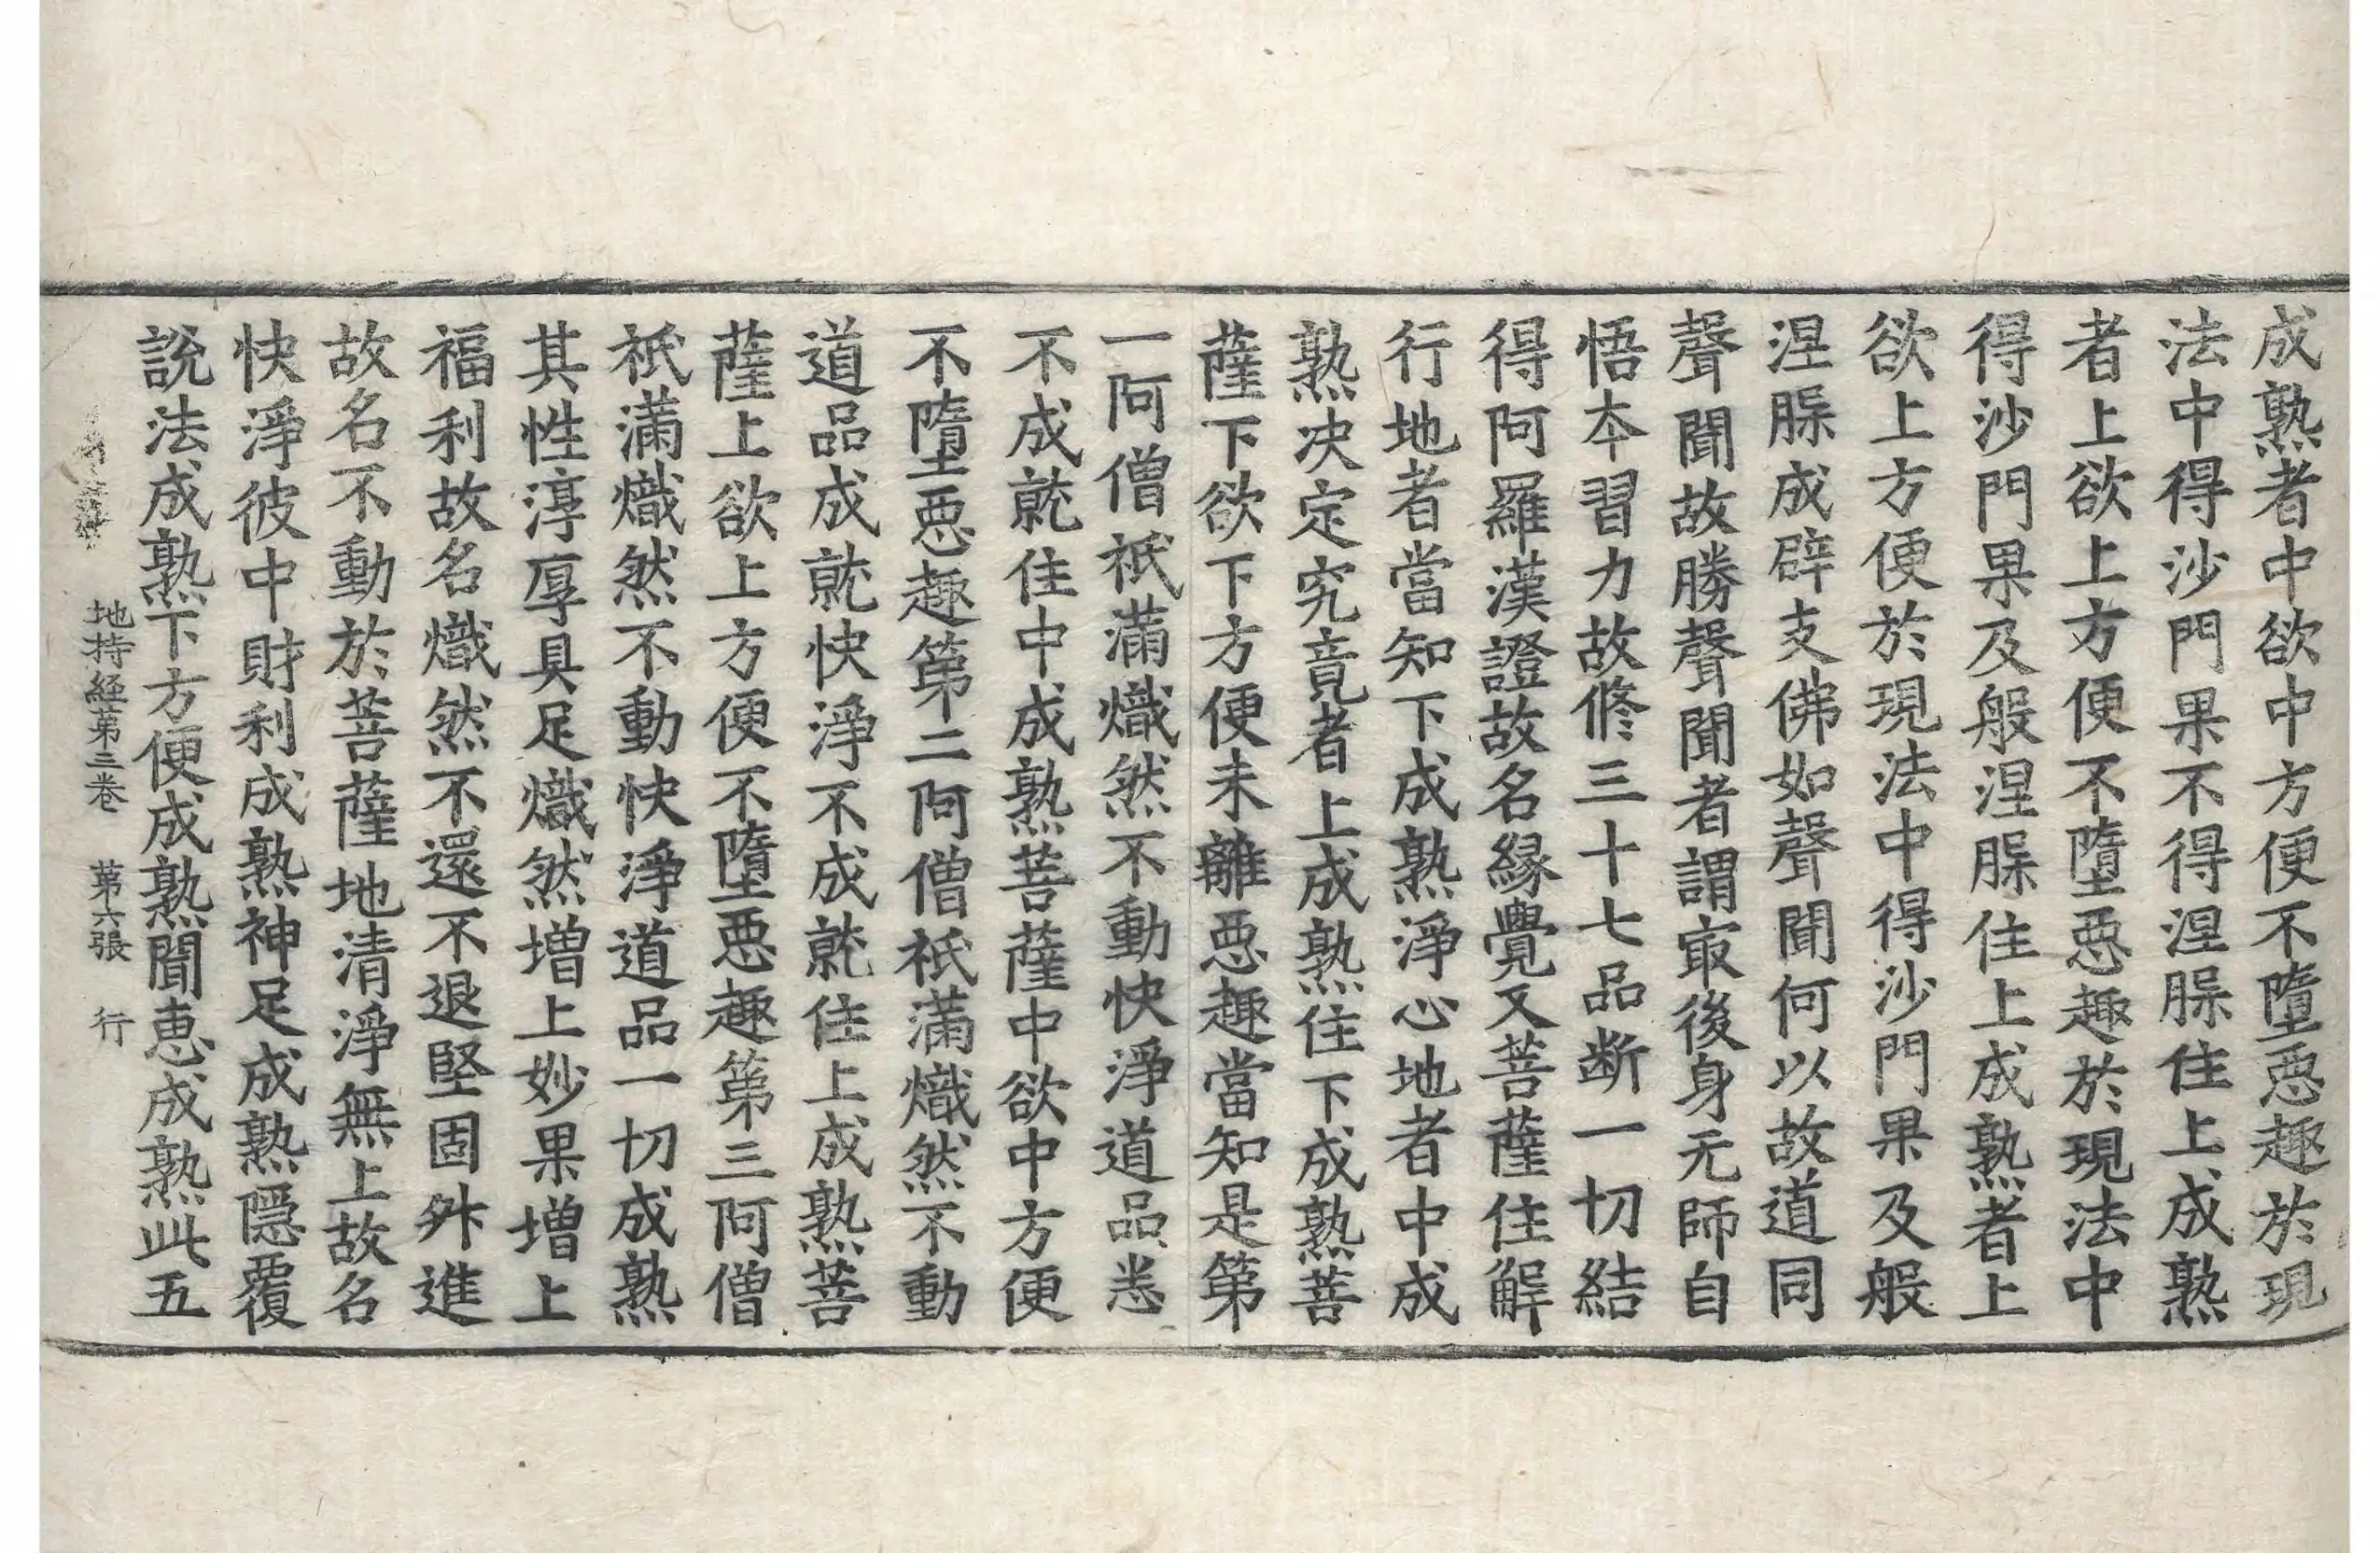 成熟者中欲中方便不墮惡趣於現
法中得沙門果不得涅槃住上成熟
者上欲上方便不墮惡趣於現法中
得沙門果及般涅槃住上成熟者上
欲上方便於現法中得沙門果及般
涅槃成辟支佛如聲聞何以故道同
聲聞故勝聲聞者謂㝡後身无師自
悟夲習力故修三十七品断一切結
得阿羅漢證故名縁覺又菩薩住解
行地者當知下成熟淨心地者中成
熟决定究竟者上成熟住下成熟菩
薩下欲下方便未離惡趣當知是第
一阿僧祇滿熾然不動快淨道品悉
不成就住中成熟菩薩中欲中方便
不墮惡趣第二阿僧祇滿熾然不動
道品成就快淨不成就住上成熟菩
薩上欲上方便不墮惡趣第三阿僧
祇滿熾然不動快淨道品一切成熟
其性淳厚具足熾然増上妙果増上
福利故名熾然不還不退堅固舛進
故名不動於菩薩地清淨無上故名
快淨彼中財利成熟神足成熟隱覆
說法成熟下方便成熟聞恵成熟此五
地持経第三巻 第六張 行